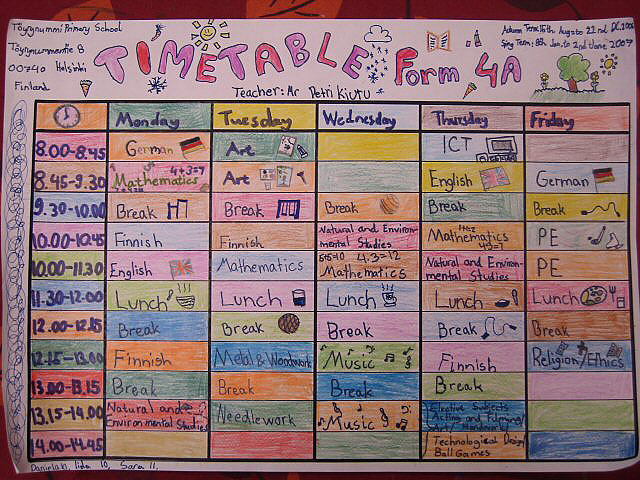 Töyrynummi Primary School
Töyrynummentie 8
00740 Helsinki
Finland
TIMETABLE Form 4A
Autumn Term: 15th August to 22nd
Spring Term: 8th Jan. to 2nd June 2007
Teacher: Mr Petri Kiuru
Monday Tuesday Wednesday Thursday Friday
8.00-8.45 German Art ICT
8.45-9.30 Mathematics 4+3=7 Art English German
9.30-10.00 Break Break Break Break Break
10.00-10.45 Finnish Finnish Natural and Environmental Studies Mathematics PE
10.00-11.30 English Mathematics 4.3=12 Mathematics Natural and Environmental Studies PE
11.30-12.00 Lunch Lunch Lunch Lunch Lunch
12.00-12.15 Break Break Break Break Break
12.15-13.00 Finnish Metal & Woodwork Music Finnish Religion/Ethics
13.00-13.15 Break Break Break Break
13.15-14.00 Natural and Environmental Studies Needlework Music Elective Subjects Acting and
14.00-14.45 Technological Design/ Ball Games
Iida 10, Sara 11,